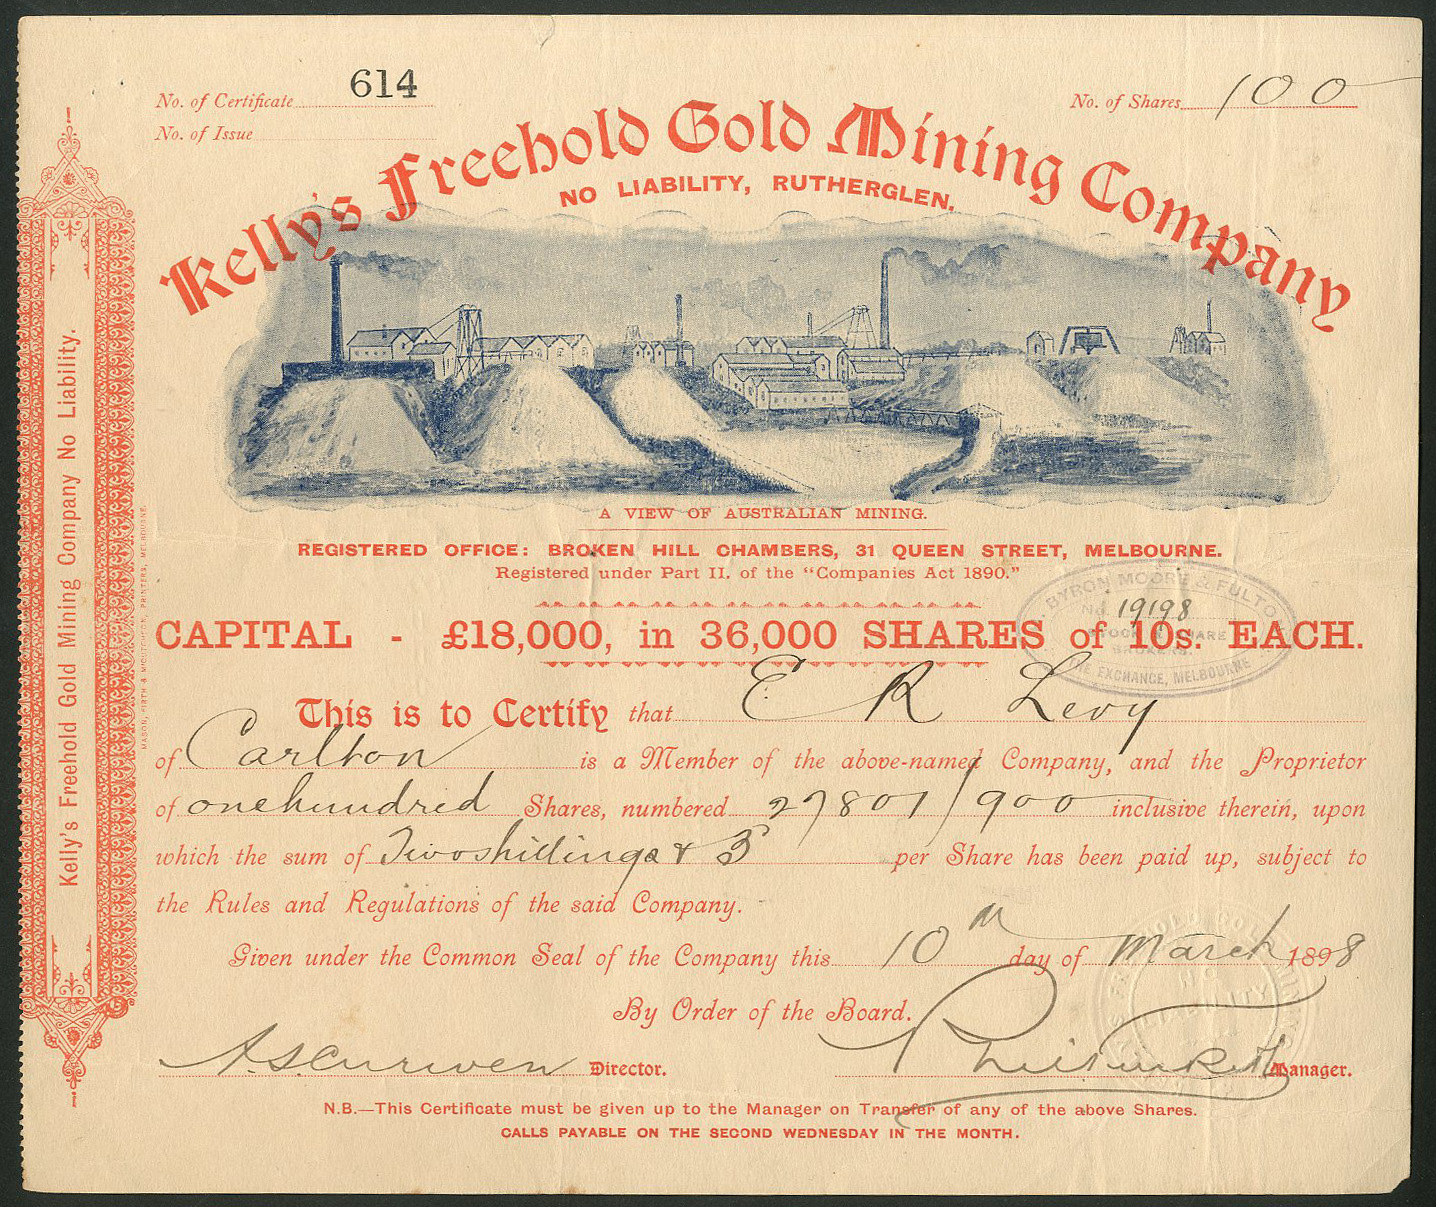 No. of Certificate 614
No. of Shares 100
No. of Issue
Kelly's Freehold Gold Mining Company
NO LIABILITY, RUTHERGLEN.
A VIEW OF AUSTRALIAN MINING.
REGISTERED OFFICE: BROKEN HILL CHAMBERS, 31 QUEEN STREET, MELBOURNE.
Registered under Part II. of the "Companies Act 1890."
BYRON MOORE & FULTON
No. 19198
STOCK & SHARE
BROKERS.
THE EXCHANGE, MELBOURNE
CAPITAL - £18,000, in 36,000 SHARES of 10s. EACH.
This is to Certify that E R Levy
of Carlton is a Member of the above-named Company, and the Proprietor
of one hundred Shares, numbered 27801/900 inclusive therein, upon
which the sum of Two shillings & 3 per Share has been paid up, subject to
the Rules and Regulations of the said Company.
Given under the Common Seal of the Company this 10th day of March 1898
By Order of the Board.
A.S. Curwen Director.
Manager.
N.B.—This Certificate must be given up to the Manager on Transfer of any of the above Shares.
CALLS PAYABLE ON THE SECOND WEDNESDAY IN THE MONTH.
Kelly's Freehold Gold Mining Company No Liability.
MASON, FIRTH & M'CUTCHEON, PRINTERS, MELBOURNE.